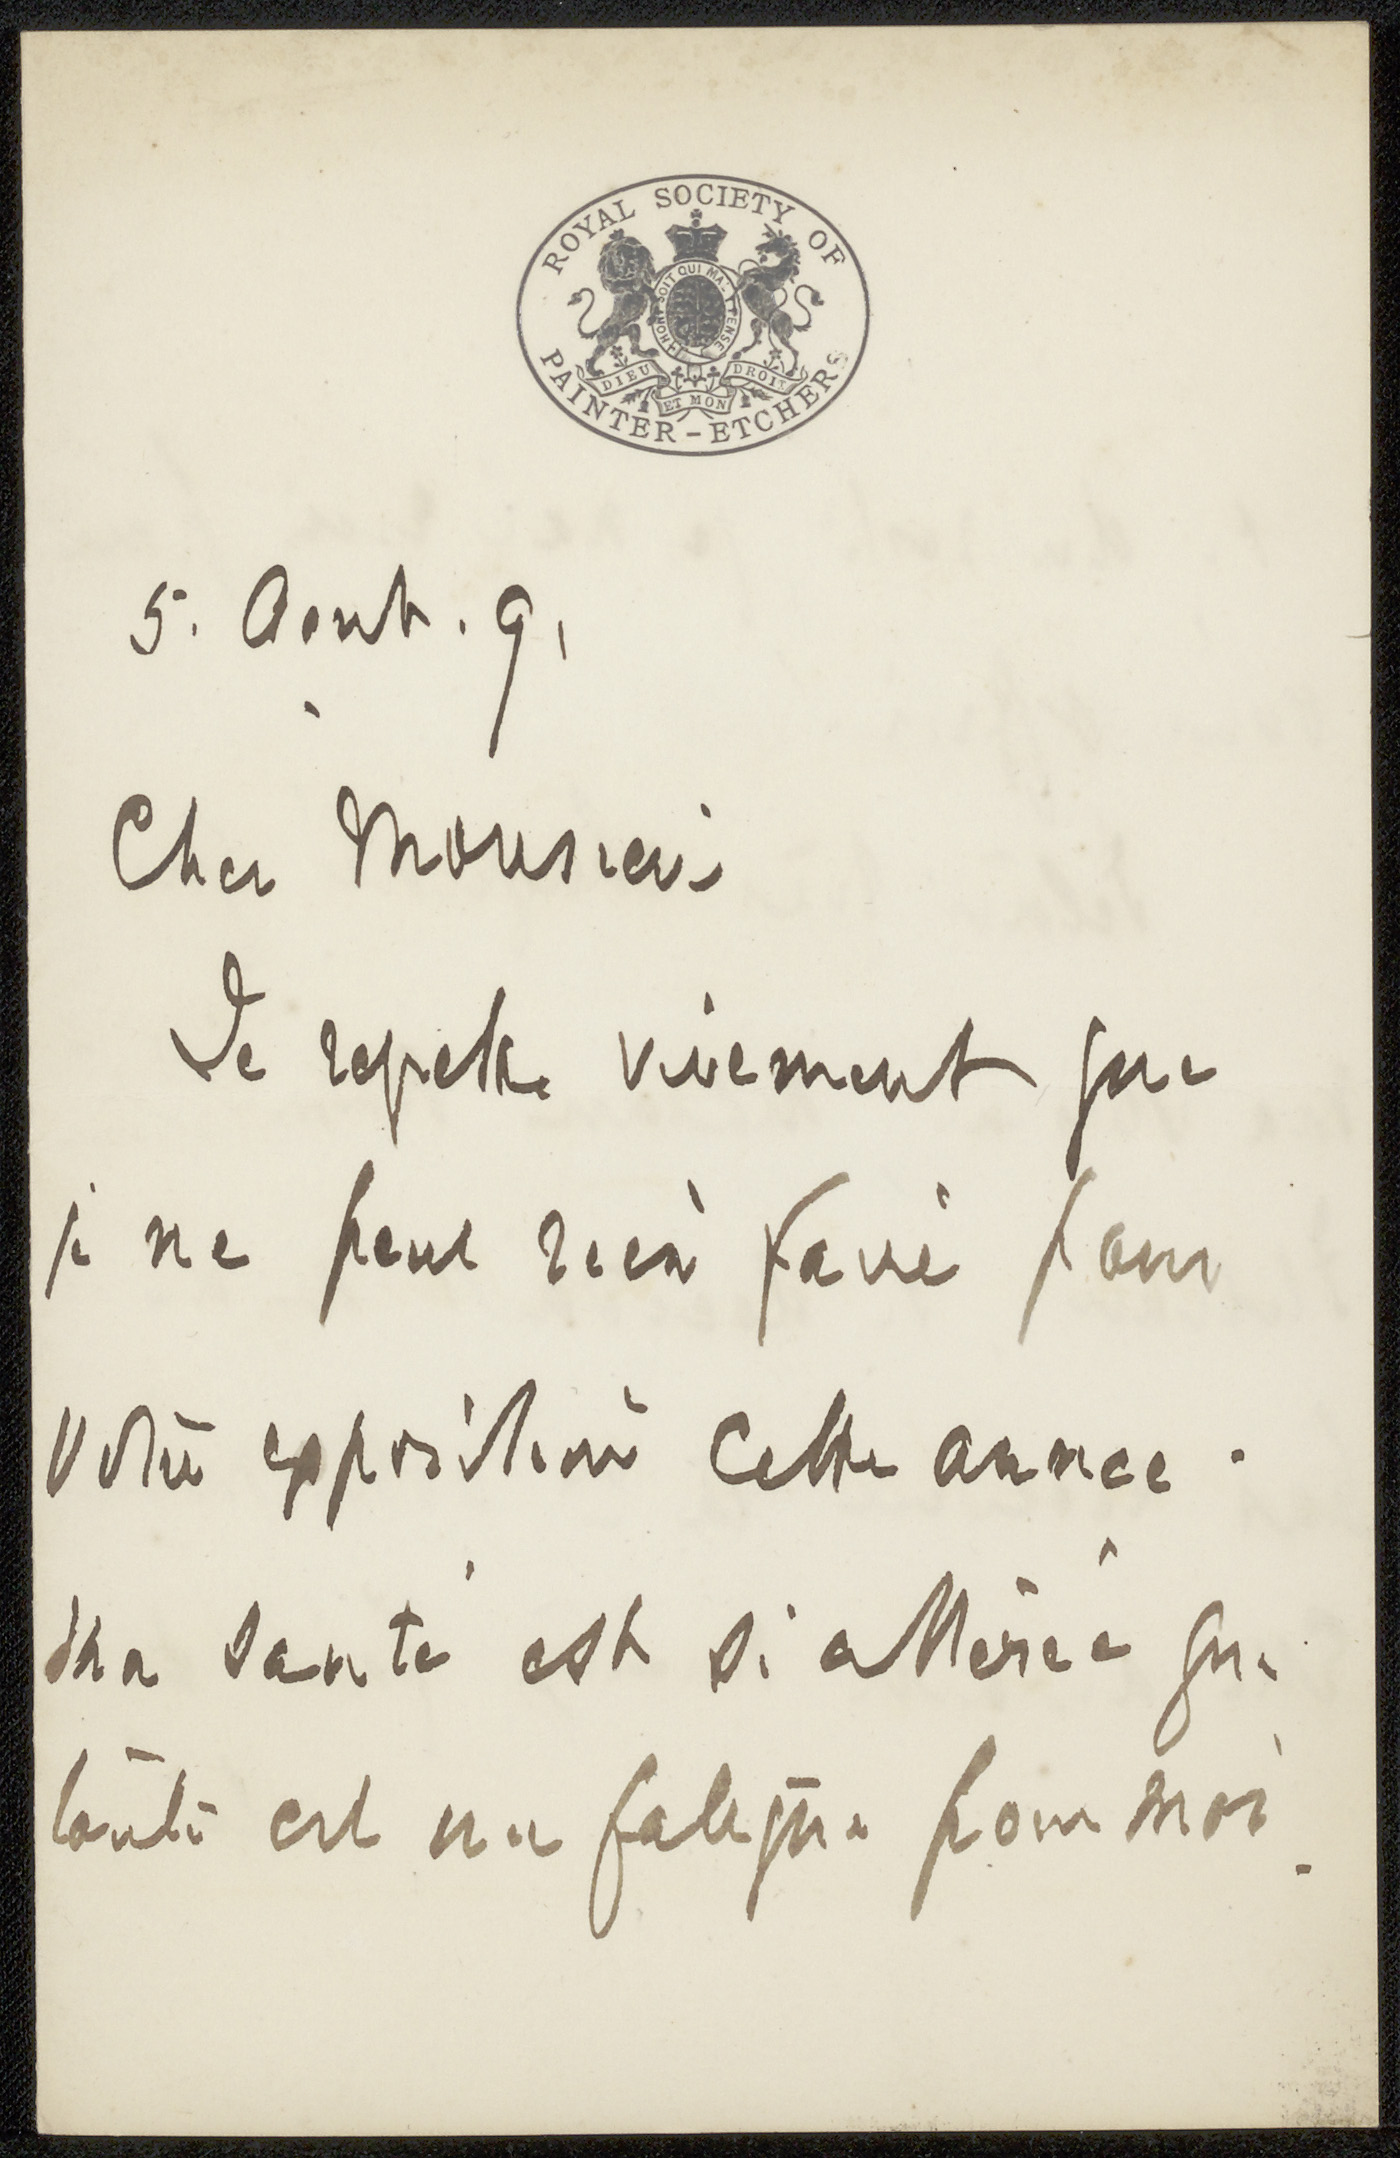 ROYAL SOCIETY OF
PAINTER-ETCHERS
HONI SOIT QUI MAL Y PENSE
DIEU ET MON DROIT
5. Aout. 91
Cher Monsieur
Je regrette vivement que
je ne peux rien faire pour
votre exposition cette annee.
Ma santé est si alterée que
toute est une fatigue pour moi.